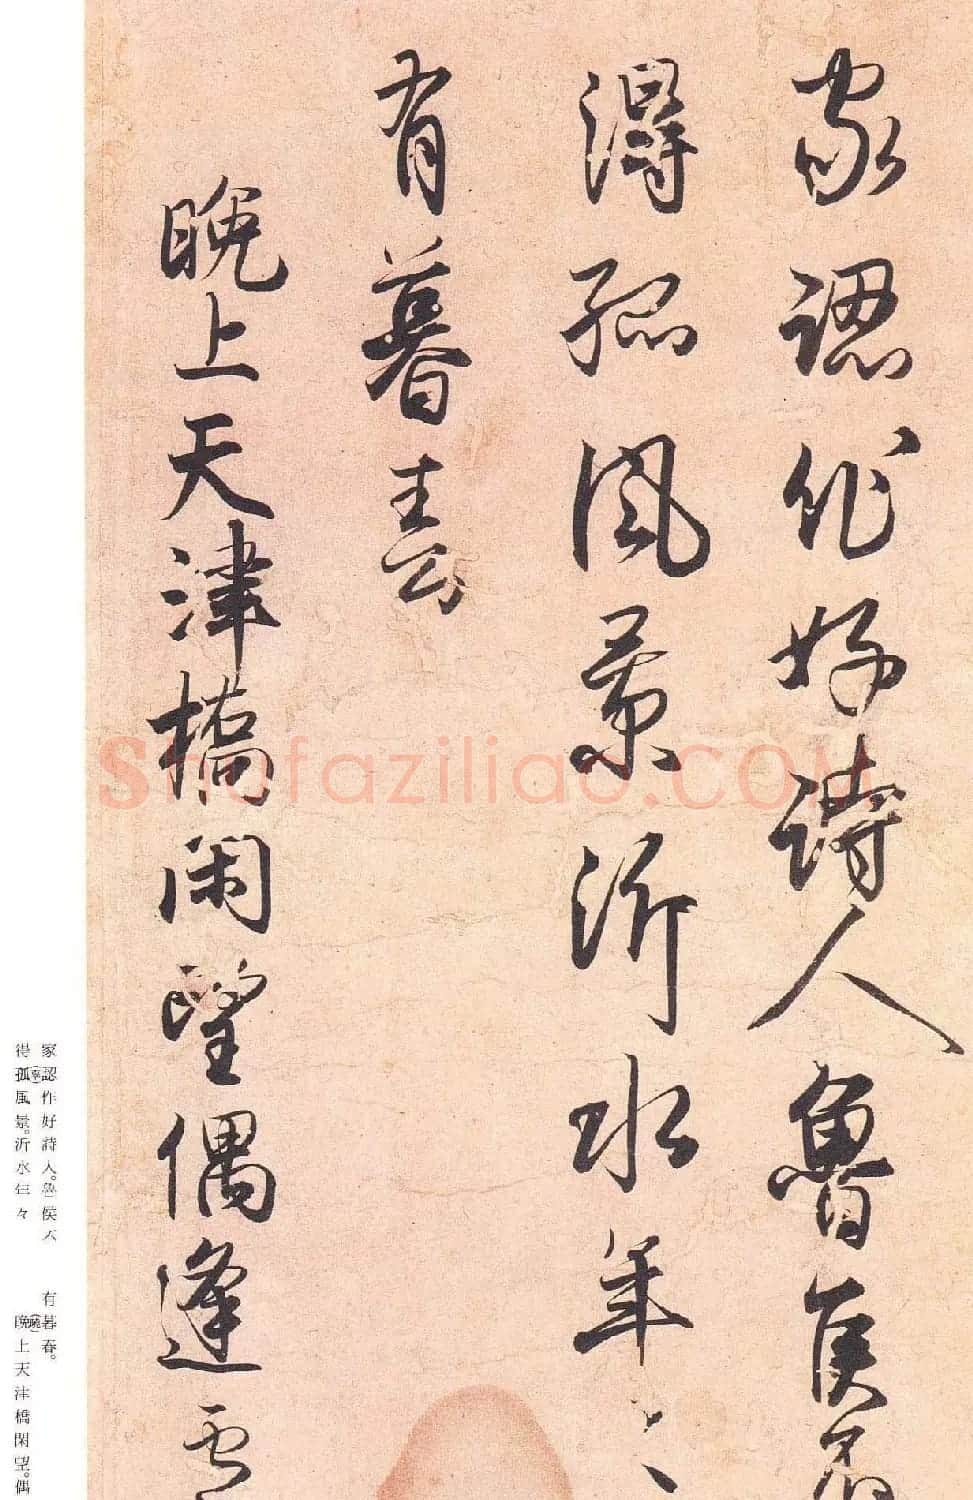 家認作好詩人魯侯不
得孤風景沂水年〻
有暮春
晚上天津橋閑望偶逢
shufaziliao.COM
家認(寧)作好詩人。魯侯不
得孤風景。沂水年々
有暮春。
晩(曉)上天津橋閑望。偶